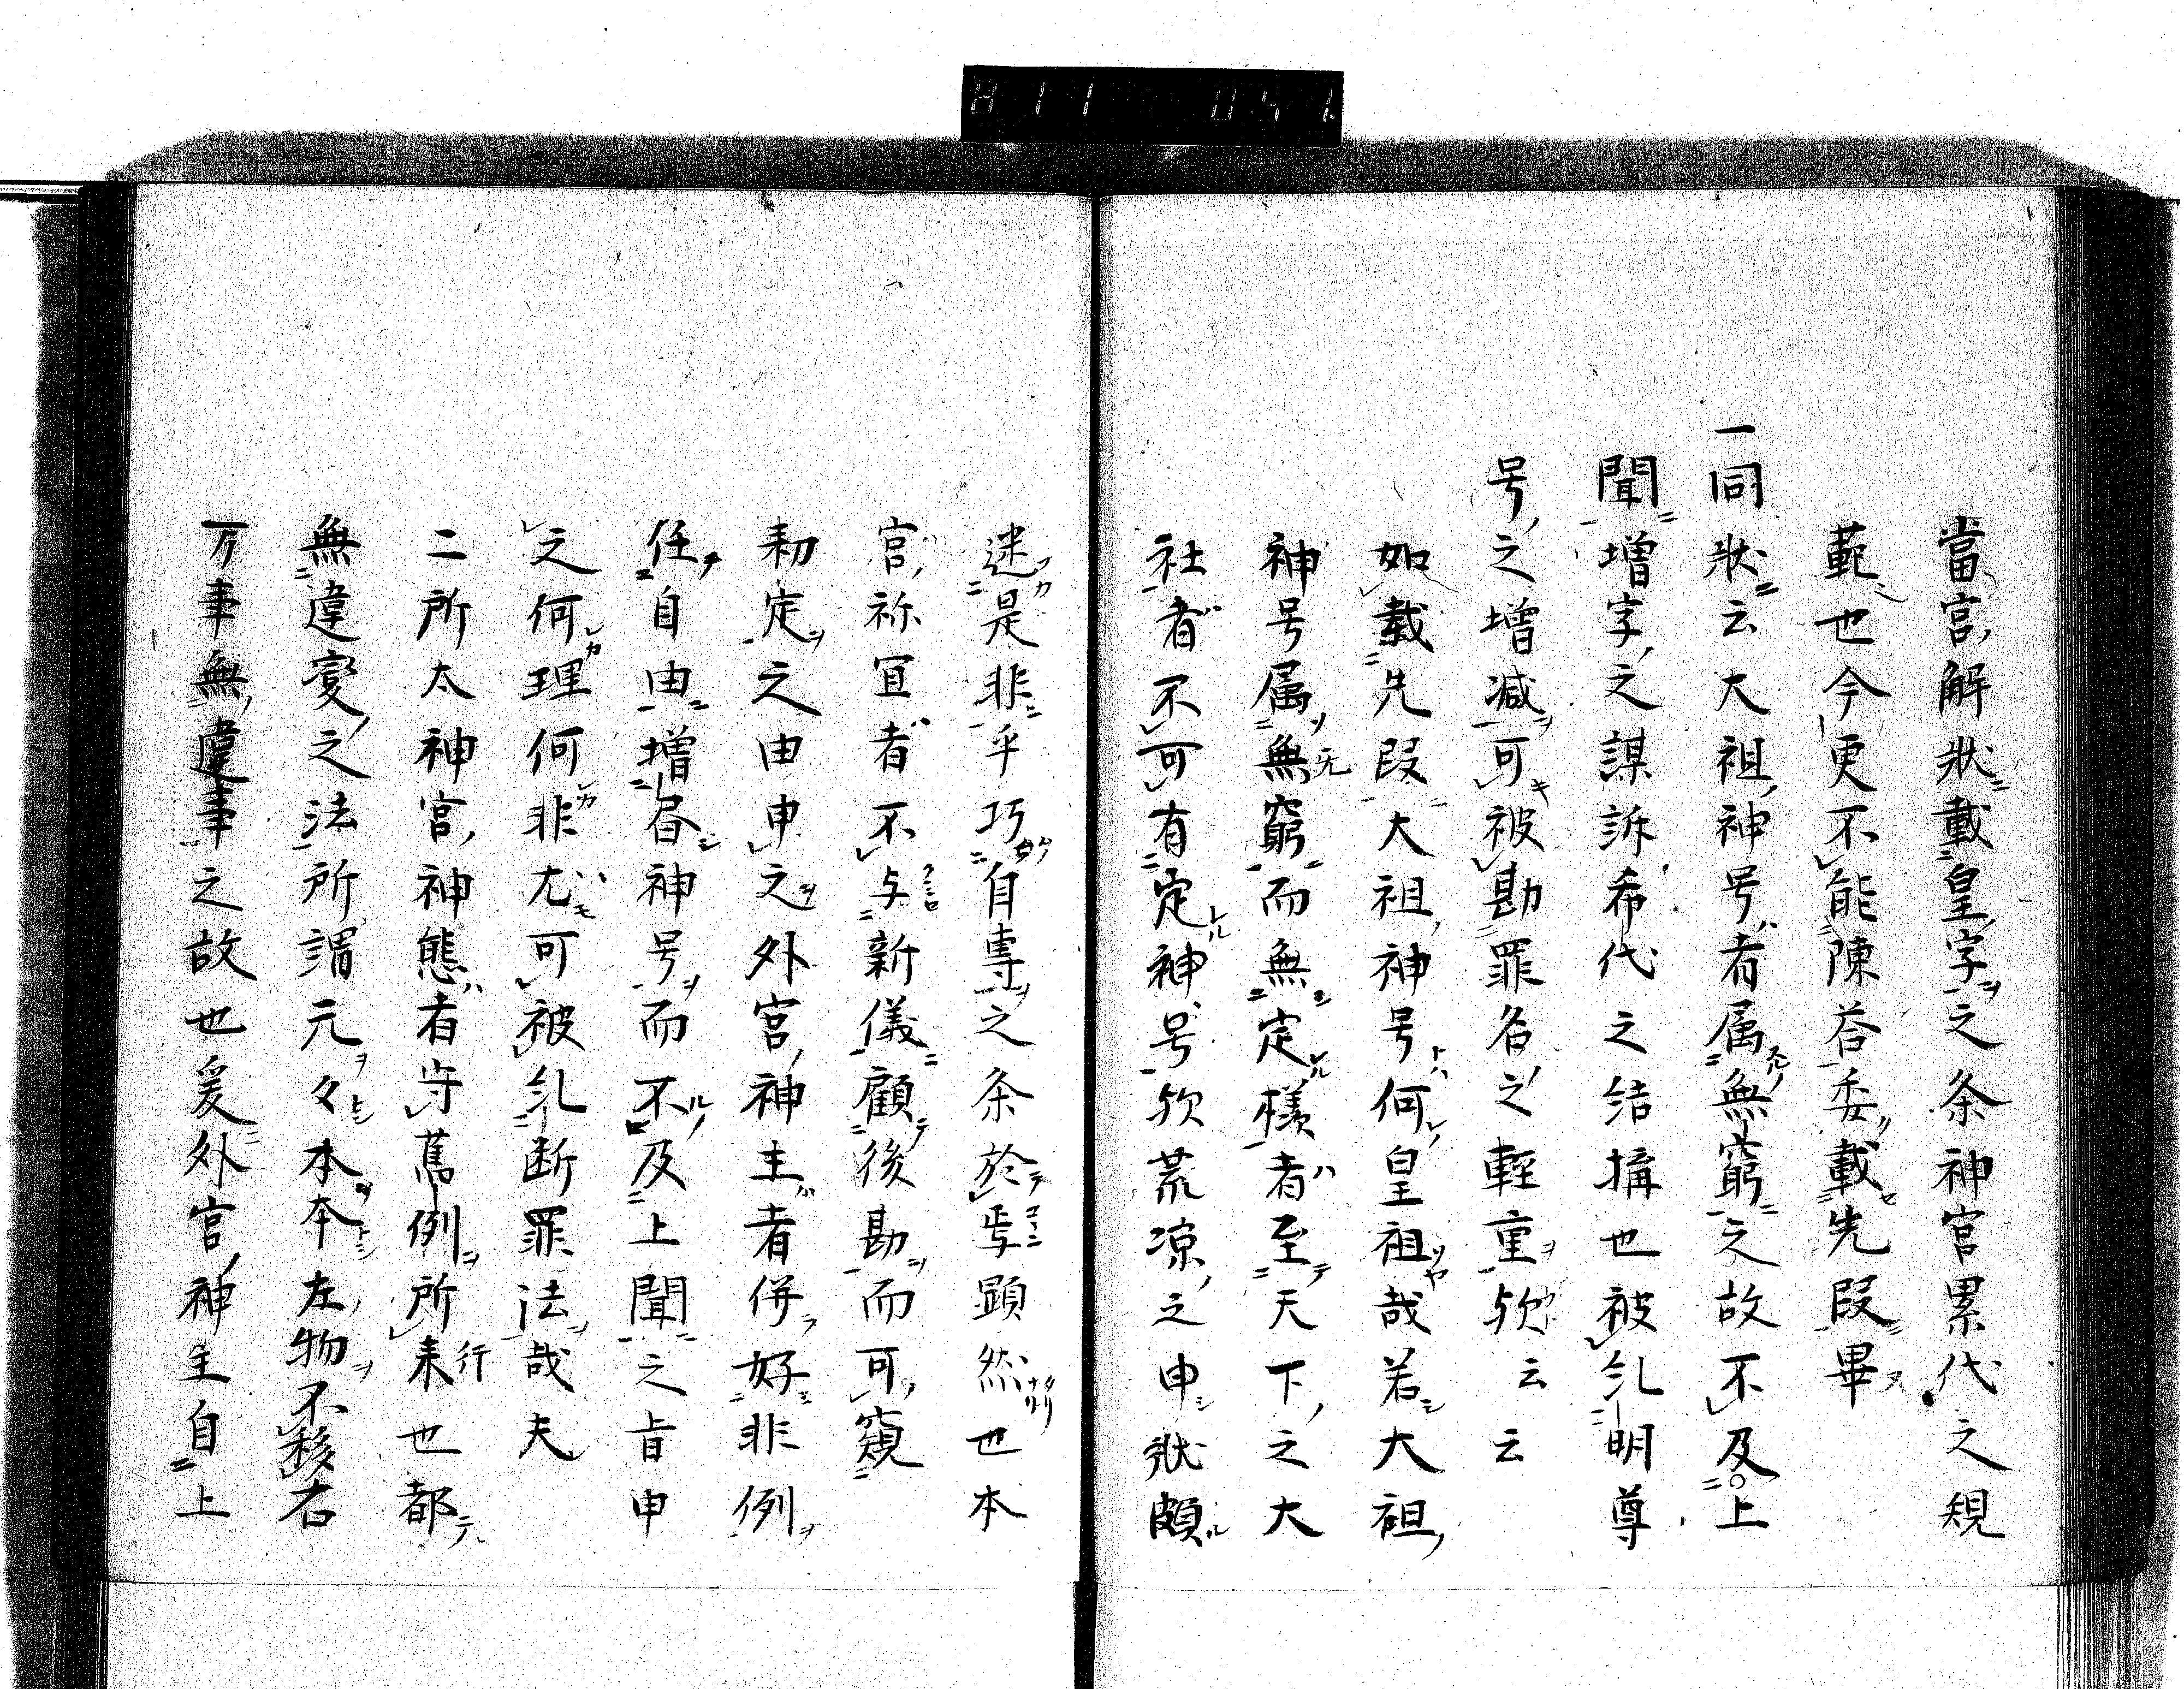 當宮解狀載皇字之条神宮累代之規
範也今更不能陳荅委載先段畢
一同狀云大祖神号者属無窮之故不及上
聞増字之謀訴希代之結搆也被糺明尊
号之增減可被勘罪名之輕重欤云云
如載先段大祖神号何皇祖哉若大祖
神号属無窮而無定樣者至天下之大
社者不可有定神号欤荒凉之申狀頗
迷是非乎巧自專之条於焉顕然也本
宮祢冝者不与新儀顧後勘而可窺
勅定之由申之外宮神主者併好非例
任自由増昏神号而不及上聞之旨申
之何理何非尤可被糺断罪法哉夫
二所太神宮神態者守舊例所来也都
無違变之法所謂元々本本左物不移右
万事無違事之故也爰外宮神主自上